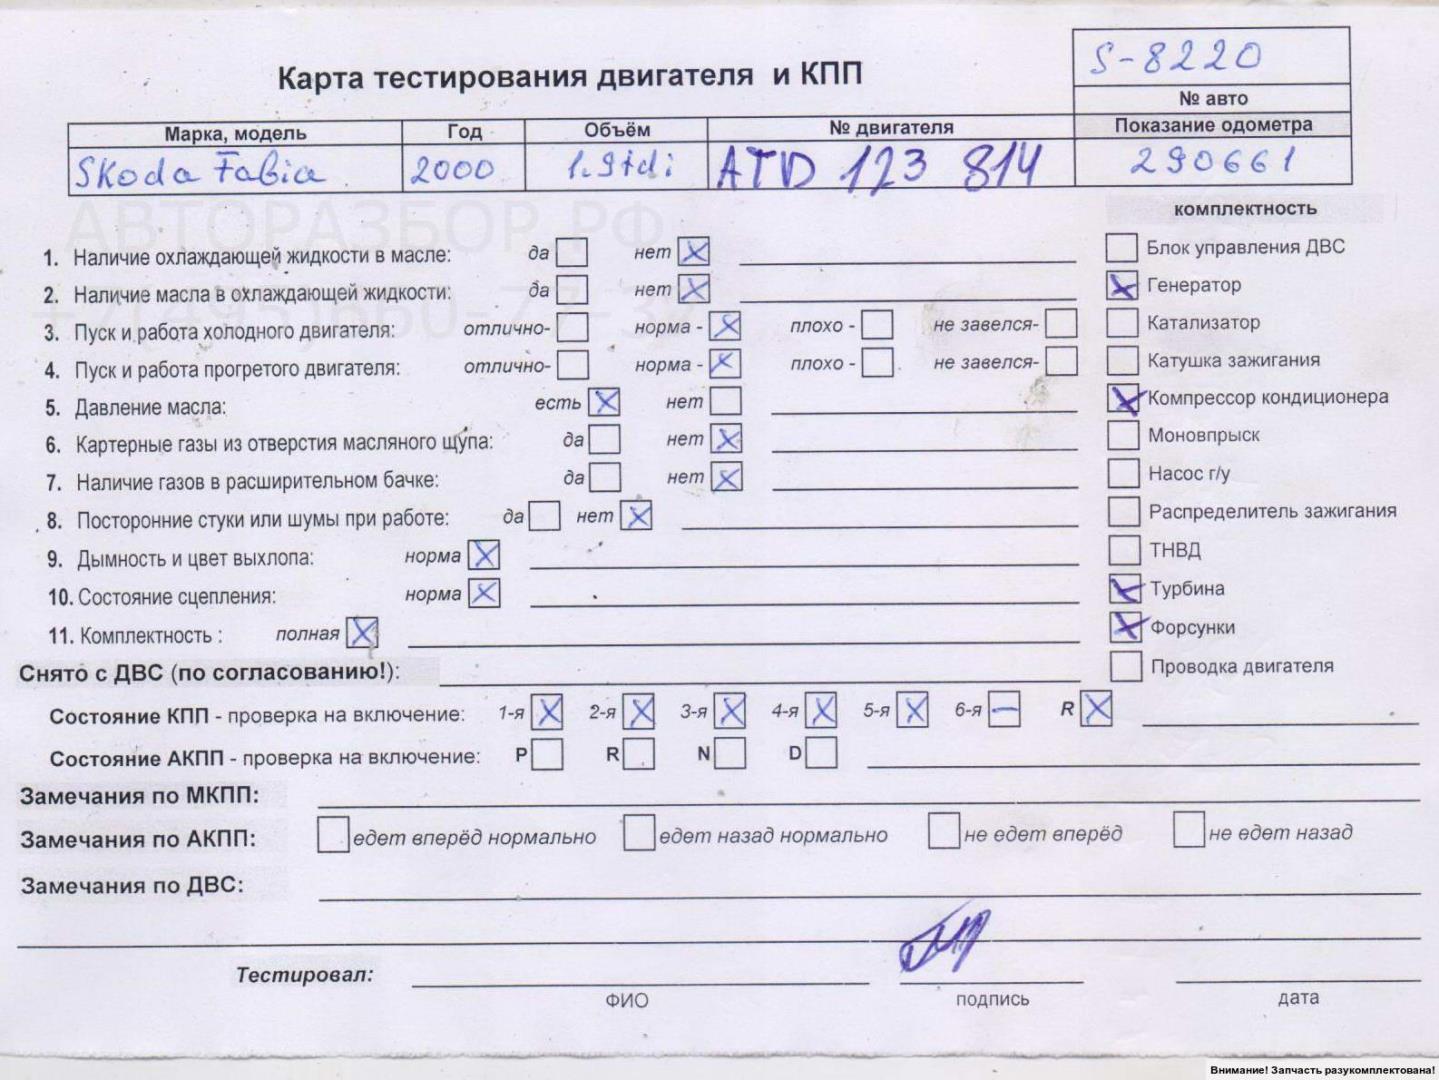 S-8220
Карта тестирования двигателя и КПП
№ авто
Марка, модель Год Объём № двигателя Показание одометра
Skoda Fabia 2000 1.9tdi ATD 123 814 290661
АВТОРАЗБОР.РФ
+7(495)660-77-37
комплектность
1. Наличие охлаждающей жидкости в масле: да нет Блок управления ДВС
2. Наличие масла в охлаждающей жидкости: да нет Генератор
3. Пуск и работа холодного двигателя: отлично- норма - плохо - не завелся- Катализатор
4. Пуск и работа прогретого двигателя: отлично- норма - плохо - не завелся- Катушка зажигания
5. Давление масла: есть нет Компрессор кондиционера
6. Картерные газы из отверстия масляного щупа: да нет Моновпрыск
7. Наличие газов в расширительном бачке: да нет Насос г/у
8. Посторонние стуки или шумы при работе: да нет Распределитель зажигания
9. Дымность и цвет выхлопа: норма ТНВД
10. Состояние сцепления: норма Турбина
11. Комплектность : полная Форсунки
Снято с ДВС (по согласованию!): Проводка двигателя
Состояние КПП - проверка на включение: 1-я 2-я 3-я 4-я 5-я 6-я R
Состояние АКПП - проверка на включение: P R N D
Замечания по МКПП:
Замечания по АКПП: едет вперёд нормально едет назад нормально не едет вперёд не едет назад
Замечания по ДВС:
Тестировал:
ФИО подпись дата
Внимание! Запчасть разукомплектована!